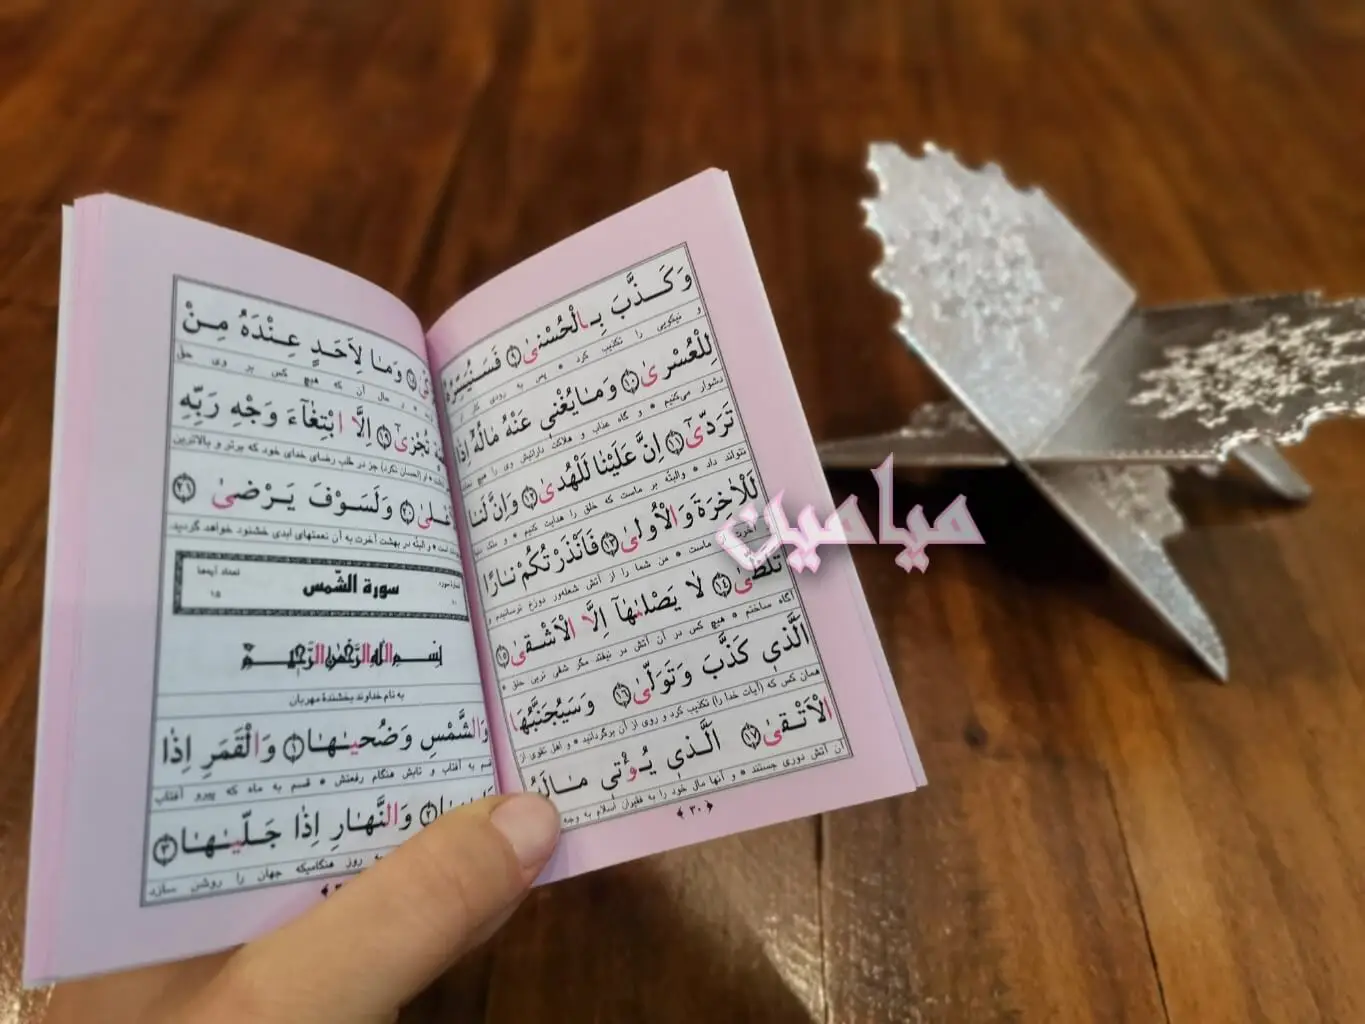 وَكَذَّبَ بِالْحُسْنىٰ ﴿٩﴾ فَسَنُيَسِّرُهُ
و نیکویی را تکذیب کرد * پس به زودی کار
لِلْعُسْرىٰ ﴿١٠﴾ وَمٰا يُغْنى عَنْهُ مٰالُهُ إِذٰا
دشوار می‌کنیم * و گاه عذاب و هلاکت دارائیش وی را هیچ
تَرَدّىٰٓ ﴿١١﴾ إِنَّ عَلَيْنٰا لَلْهُدىٰ ﴿١٢﴾ وَإِنَّ لَنٰا
نتواند داد * والبته بر ماست که خلق را هدایت کنیم * و ملک دنیا
لَلْاٰخِرَةَ وَالْاُولىٰ ﴿١٣﴾ فَاَنْذَرْتُكُمْ نٰارًا
ماست * من شما را از آتش شعله‌ور دوزخ ترسانیدم و
تَلَظّىٰ ﴿١٤﴾ لٰا يَصْلىٰهٰآ اِلَّا الْاَشْقىٰ ﴿١٥﴾
آگاه ساختم * هیچ کس در آن آتش در نیفتد مگر شقی ترین خلق *
اَلَّذى كَذَّبَ وَتَوَلّىٰ ﴿١٦﴾ وَسَيُجَنَّبُهَا
همان کس که (آیات خدا را) تکذیب کرد و روی از آن برگردانید * و اهل تقوی از
الْاَتْقىٰ ﴿١٧﴾ اَلَّذى يُؤْتى مٰالَهُ
آن آتش دوری جستند * و آنها مال خود را به فقیران اسلام به وجه
٣٠
وَمٰا لِاَحَدٍ عِنْدَهُ مِنْ
حال آن که هیچ کس بر وی حق
تُجْزىٰٓ ﴿١٩﴾ اِلَّا ابْتِغٰآءَ وَجْهِ رَبِّهِ
او (احسان نکرد) جز در طلب رضای خدای خود که برتر و بالاترین
﴿٢٠﴾ وَلَسَوْفَ يَرْضىٰ ﴿٢١﴾
است * والبته در بهشت آخرت به آن نعمتهای ابدی خشنود خواهد گردید.
سورة الشّمس
تعداد آیه‌ها
١٥
بِسْمِ اللّٰهِ الرَّحْمٰنِ الرَّحيمِ
به نام خداوند بخشندهٔ مهربان
وَالشَّمْسِ وَضُحيٰهٰا ﴿١﴾ وَالْقَمَرِ اِذٰا
قسم به آفتاب و تابش هنگام رفعتش * قسم به ماه که پیرو آفتاب
﴿٢﴾ وَالنَّهٰارِ اِذٰا جَلّيٰهٰا ﴿٣﴾
به روز هنگامیکه جهان را روشن سازد
میامین